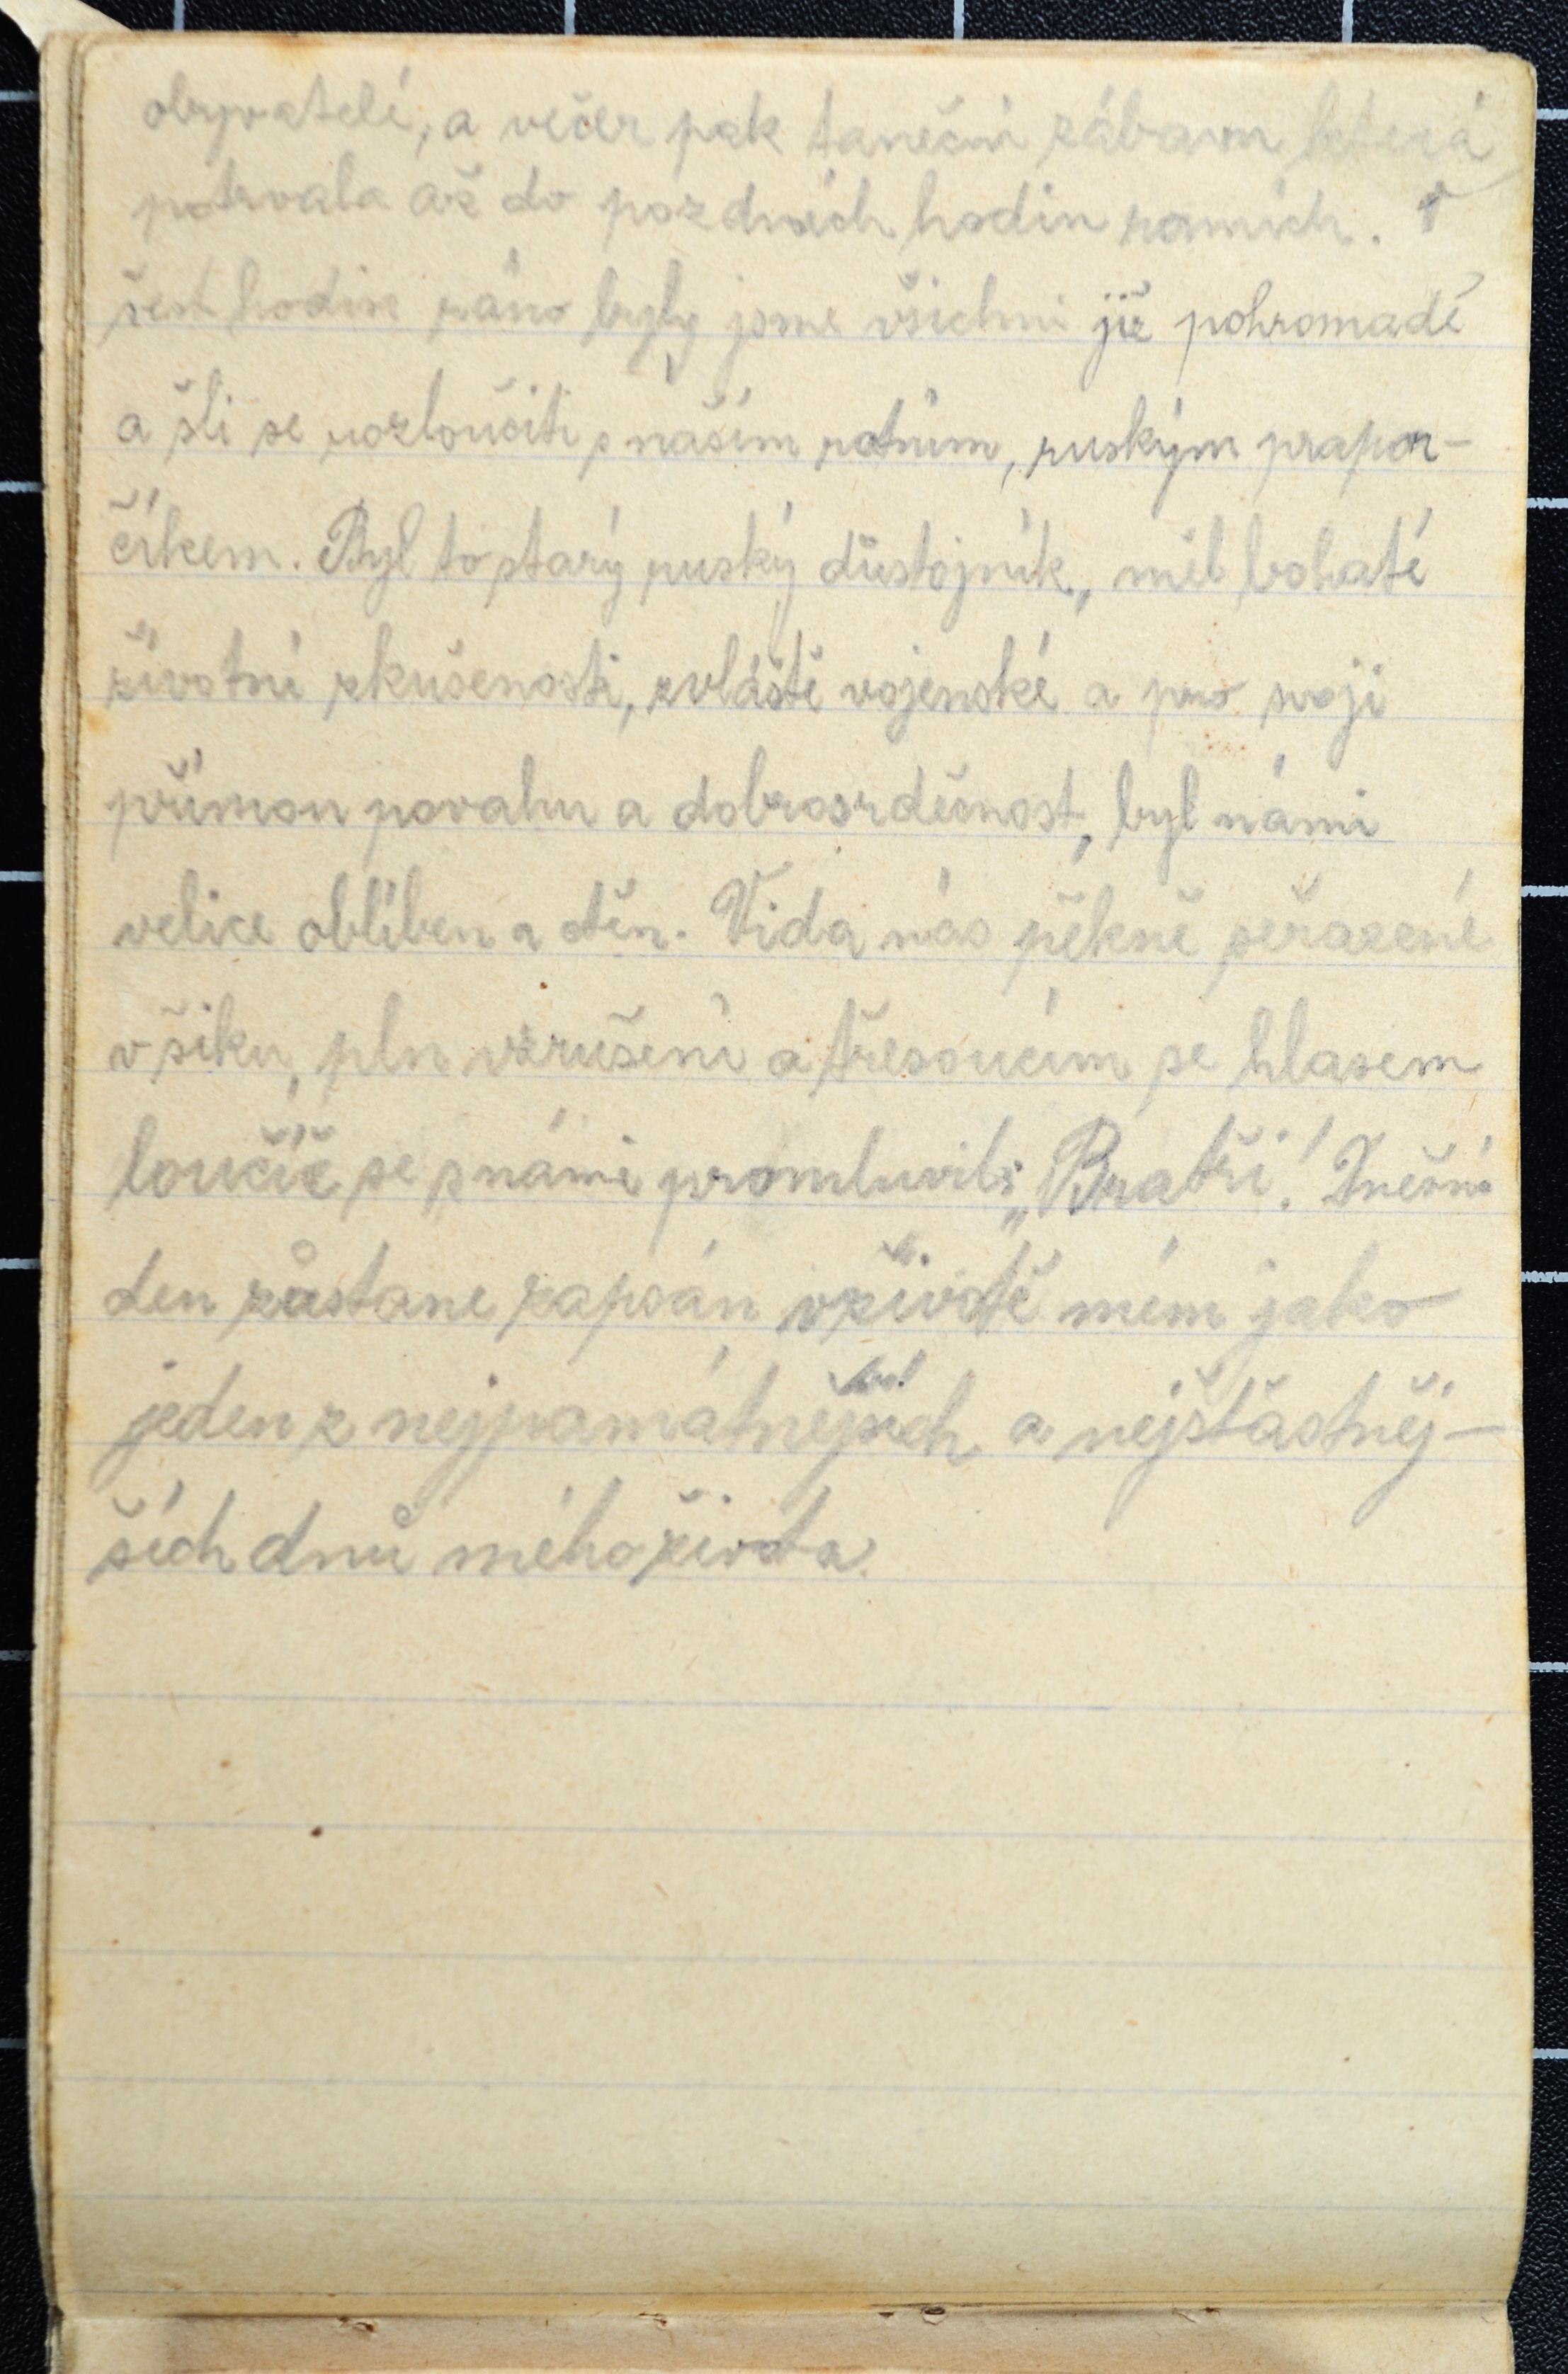 obyvatelé, a večer pak taneční zábava která
potrvala až do pozdních hodin ranních. V
šest hodin ráno byly jsme všichni již pohromadě
a šli se rozloučiti s naším rotním, ruským prapor-
číkem. Byl to starý ruský důstojník, měl bohaté
životní zkušenosti, zvláště vojenské a pro svoji
přímou povahu a dobrosrdečnost, byl námi
velice oblíben a ctěn. Vida nás pěkně seřazené
v šiku, pln vzrušení a třesoucím se hlasem
loučíc se s námi promluvil: „Bratři! Dnešní
den zůstane zapsán v životě mém jako
jeden z nejpamátnějších a nejšťastněj-
ších dnů mého života.